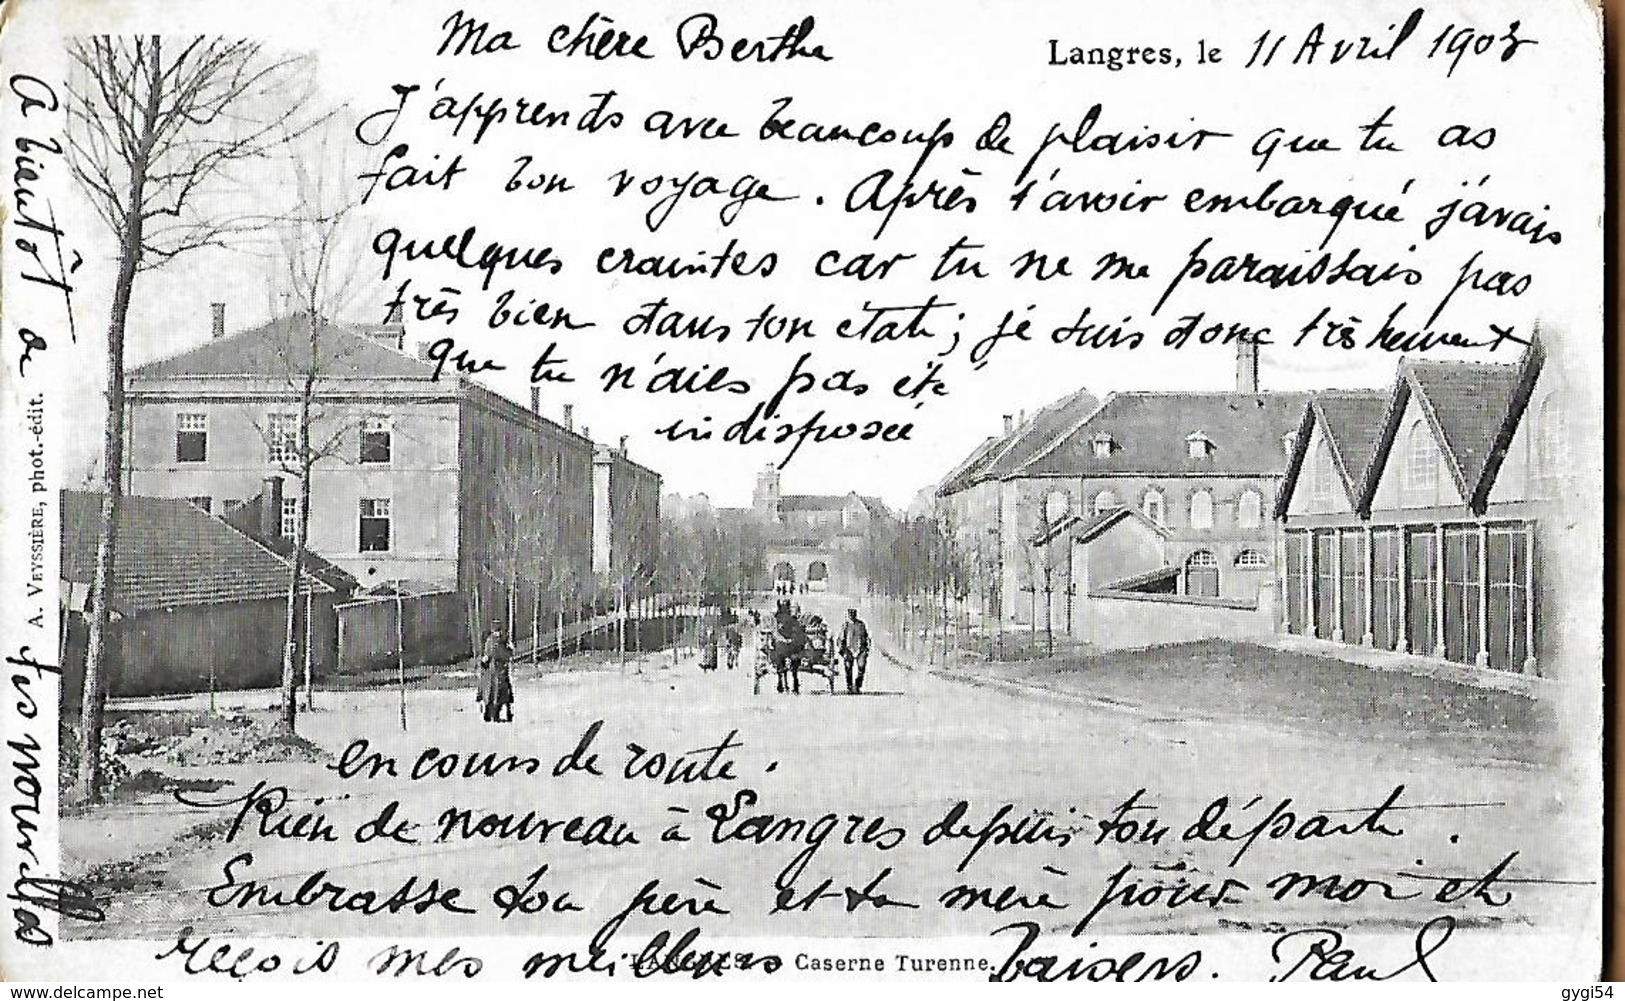 Ma chère Berthe
Langres, le 11 Avril 1903
J'apprends avec beaucoup de plaisir que tu as
fait bon voyage. Après t'avoir embarqué j'avais
quelques craintes car tu ne me paraissais pas
très bien dans ton état; je suis donc très heureux
que tu n'aies pas été
indisposée
en cours de route.
Rien de nouveau à Langres depuis ton départ.
Embrasse ton père et ta mère pour moi et
reçois mes meilleurs baisers. Paul
Caserne Turenne.
A bientôt de tes nouvelles
A. VEYSSIÈRE, phot.-édit.
delcampe.net
gygi54